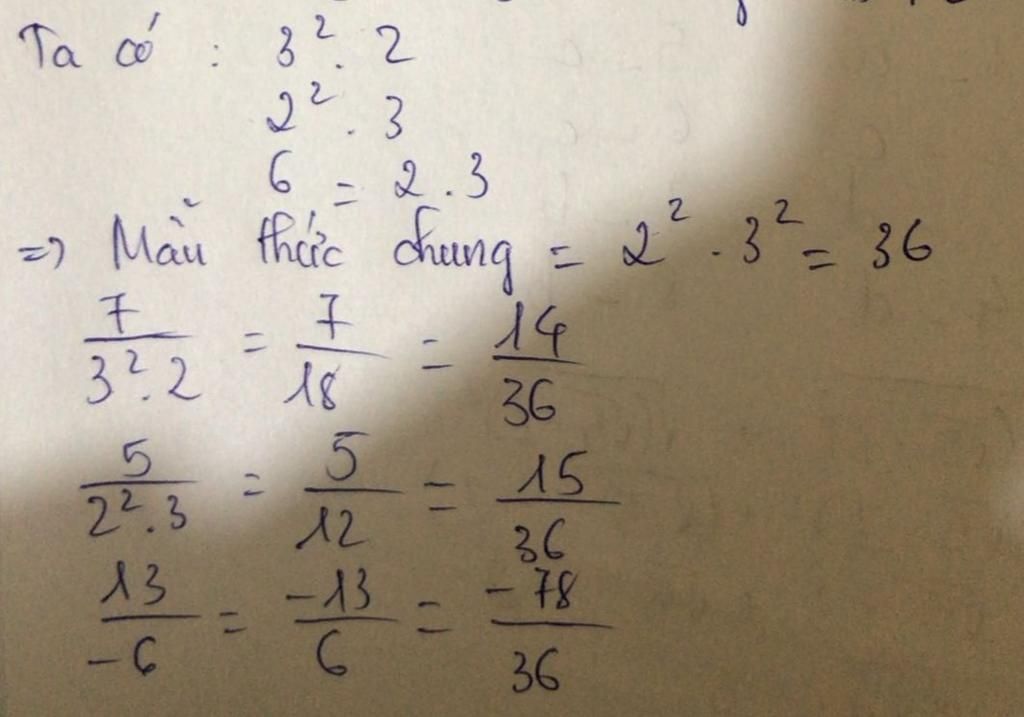 Ta có : 3². 2
2² . 3
6 = 2 . 3
=> Mẫu thức chung = 2² . 3² = 36
7/3².2 = 7/18 = 14/36
5/2².3 = 5/12 = 15/36
13/-6 = -13/6 = -78/36